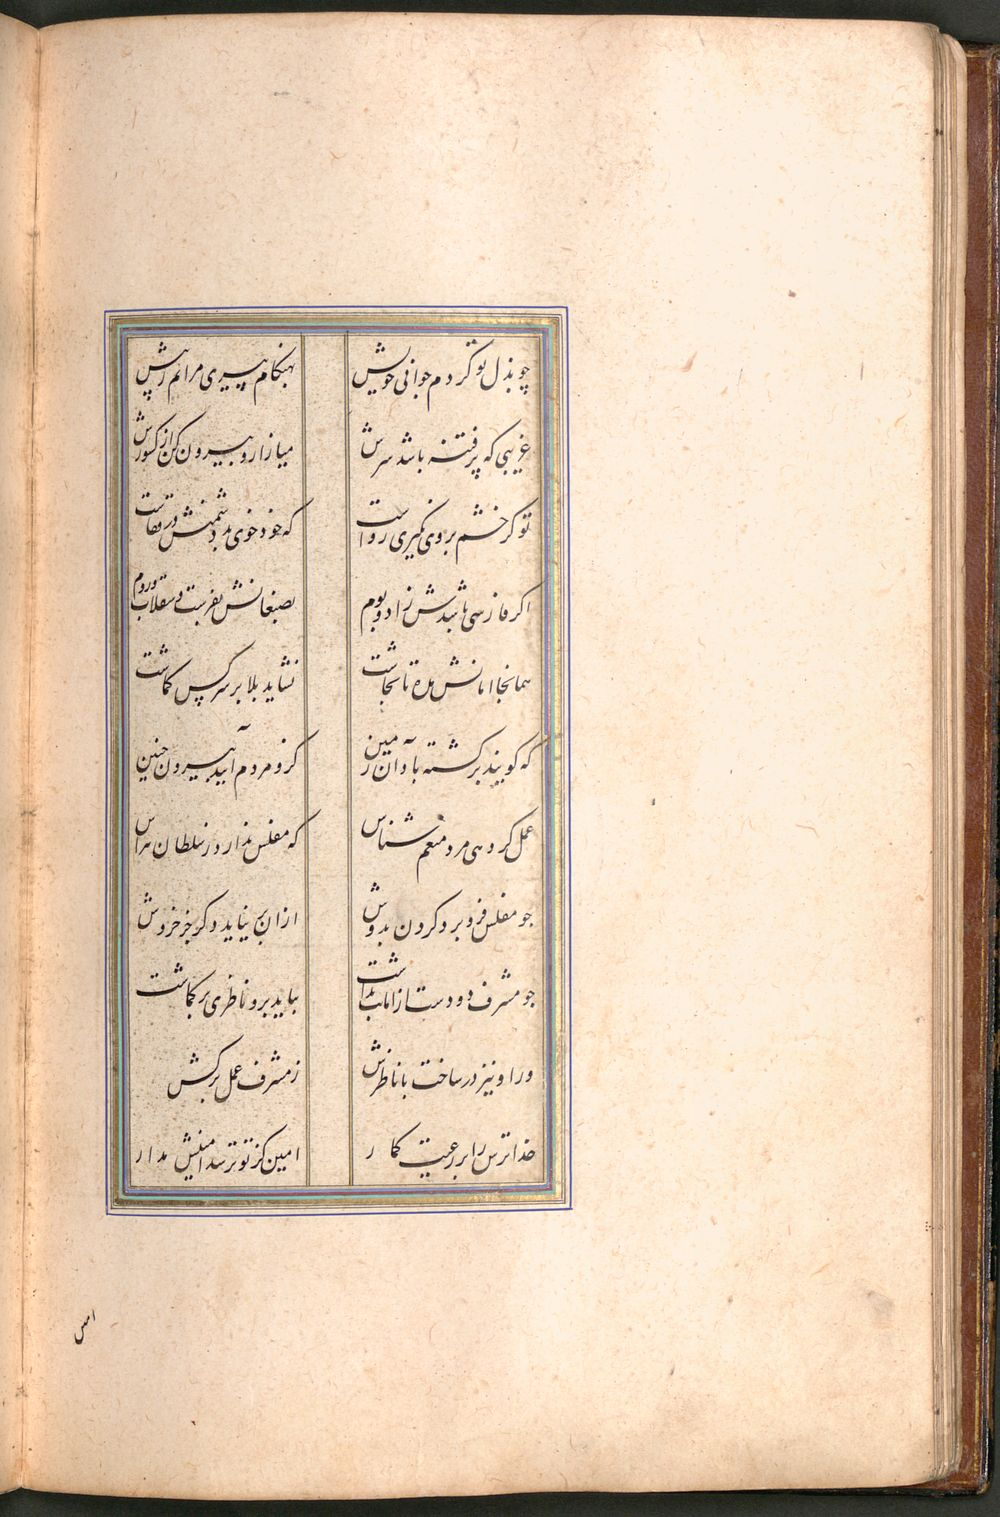 چو بذل تو کردم جوانی خویش بهنکام پیری مرانم ز پیش
غریبی که پر فتنه باشد سرش میازار و بیرون کن از کشورش
تو کر خشم بروی نکیری رواست که خود خوی بد دشمنش در قفاست
اکر فارسی باشدش زاد و بوم بصنعانش مفرست و سقلاب و روم
همانجا امانش مده تا بچاشت نشاید بلا بر سر کس کماشت
که کویند برکشته باد آن زمین کزو مردم آیند بیرون چنین
عمل کر دهی مرد منعم شناس که مفلس ندارد ز سلطان هراس
جو مفلس فرو برد کردن بدوش ازان بر نیاید دکر جز خروش
جو مشرف دو دست از امانت بداشت بباید برو ناظری بر کماشت
ور او نیز در ساخت با ناظرش ز مشرف عمل برکش
خدا ترس را بر رعیت کمار امین کز تو ترسد امینش مدار